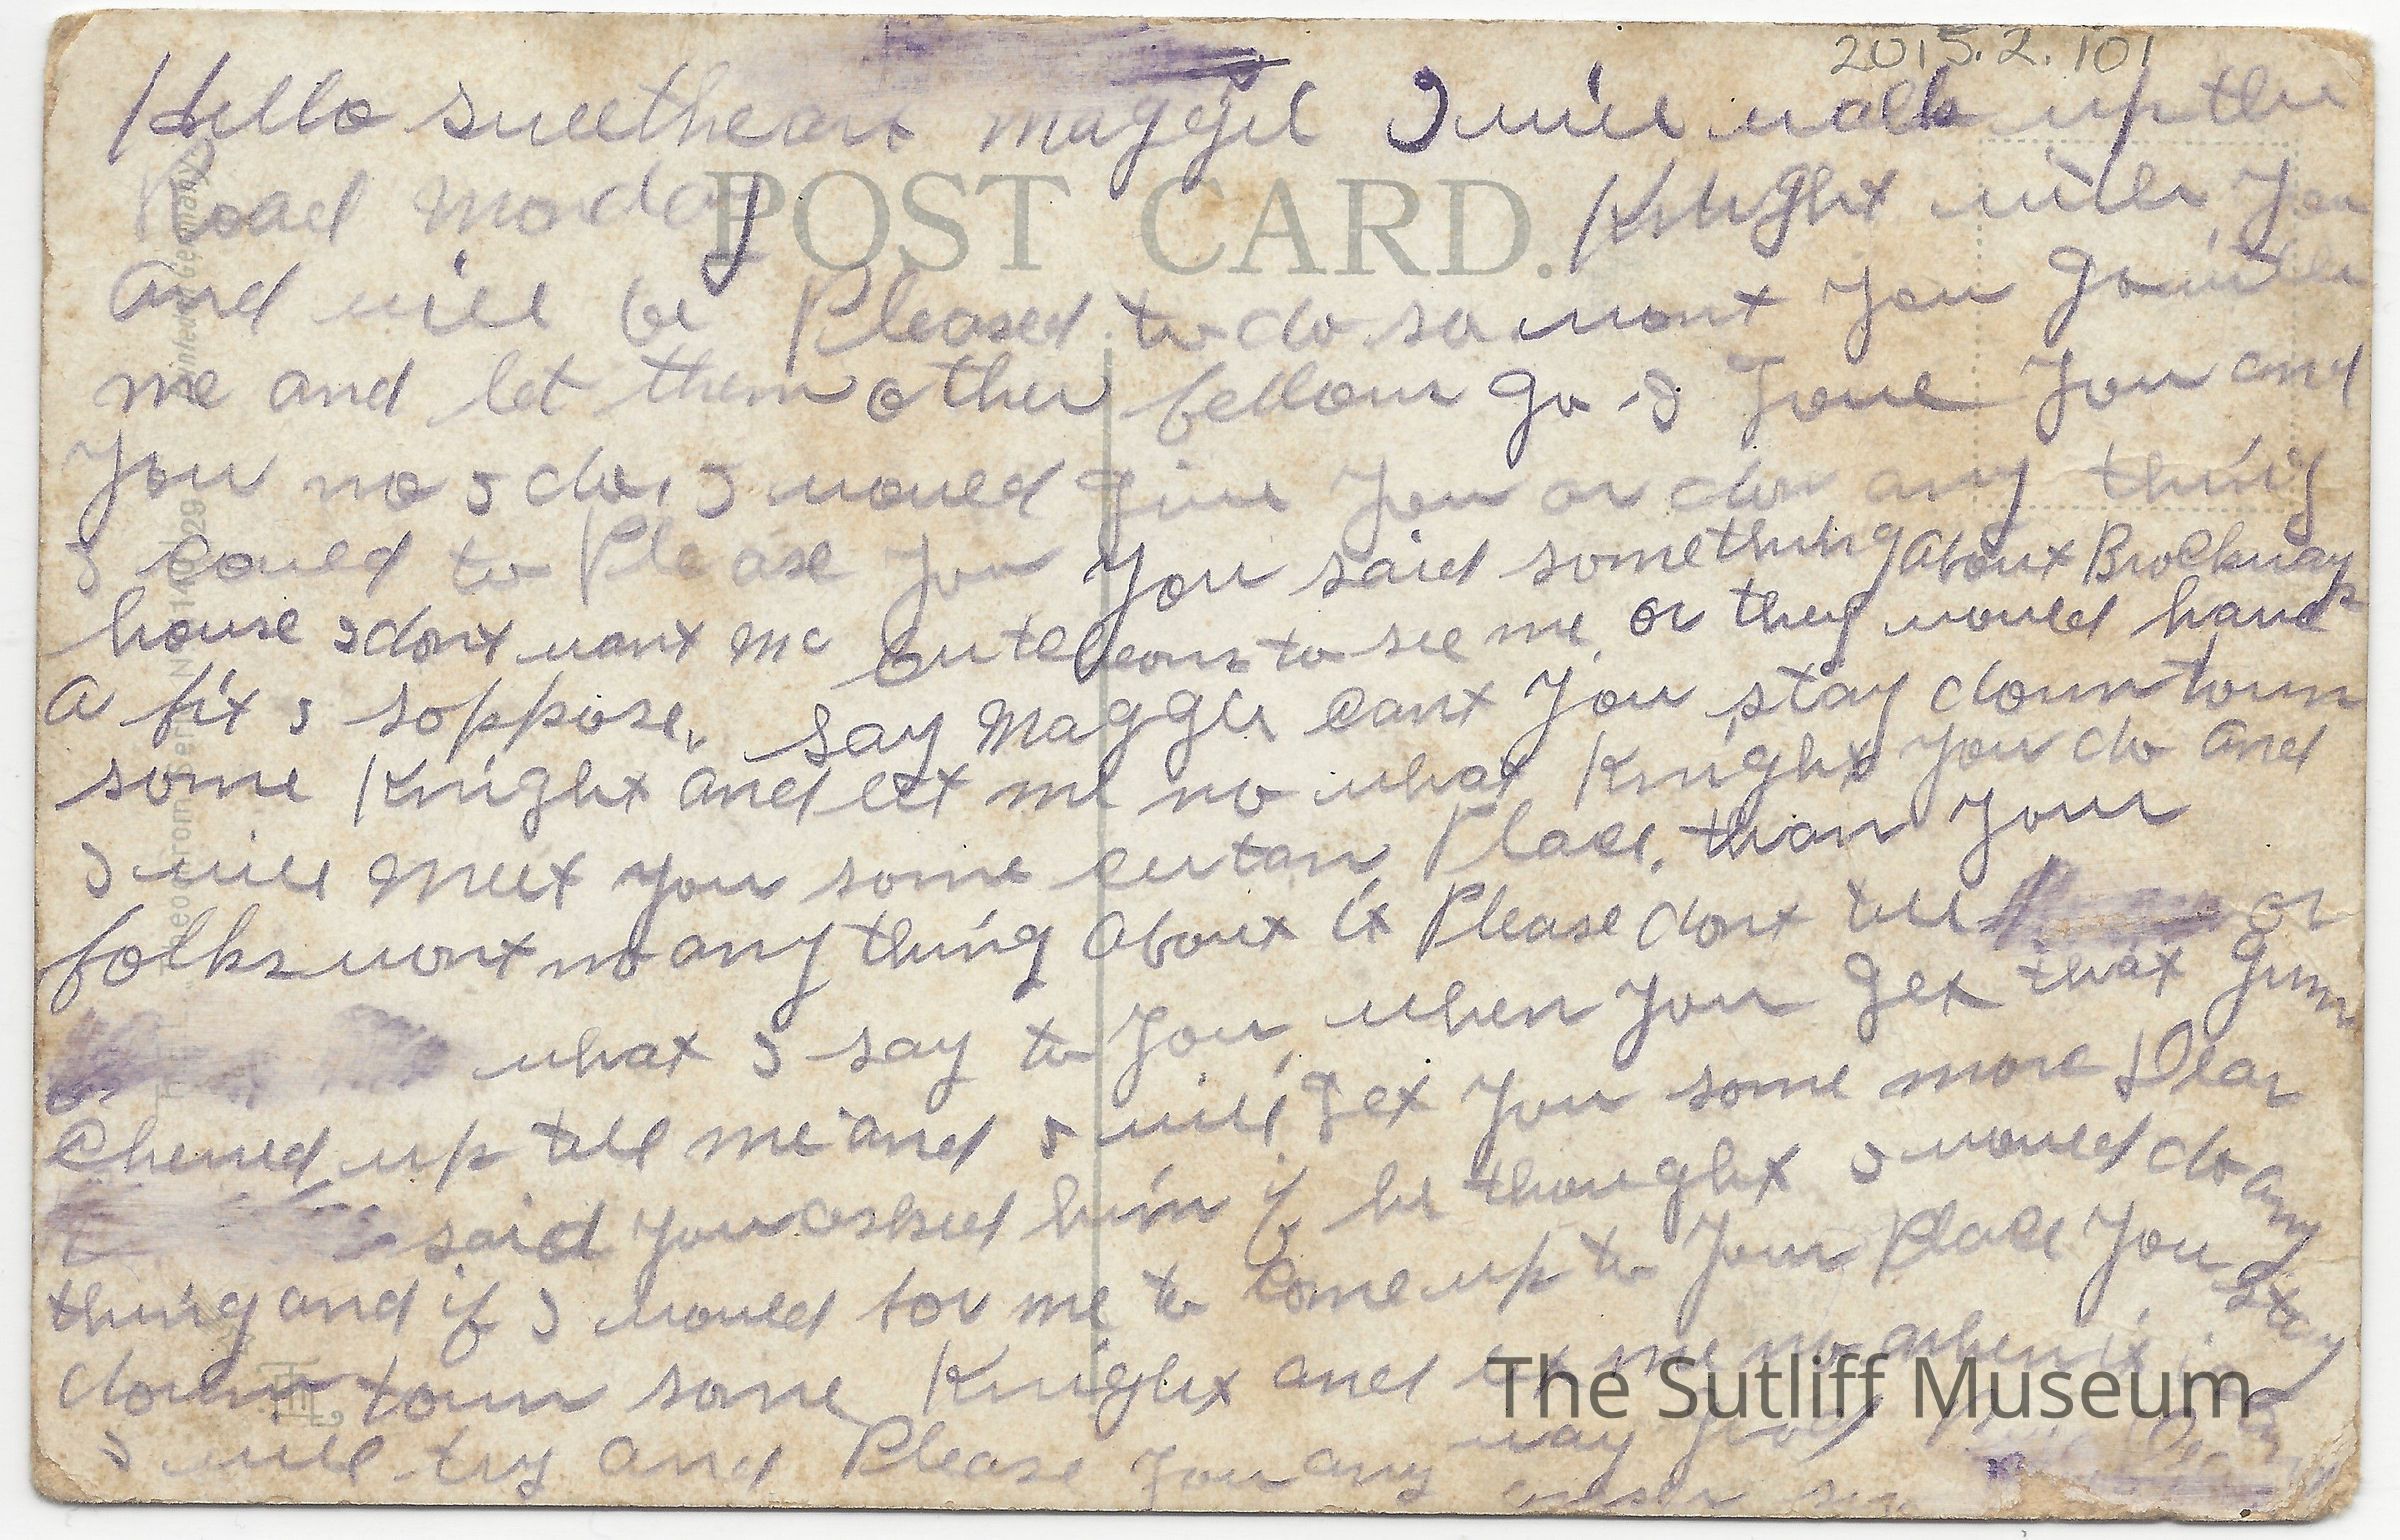 2015.2.101
Hello sweetheart Maggie I will walk up the
Road Monday Knight with you
POST CARD.
and will be Pleased to do so wont you go with
me and let them other fellows go I love you and
You no I do, I would give you or do any thing
I could to Please you You said something about Brockways
house I dont want Mc to see me, or they would have
a fit I soppose, say Maggie cant you stay down town
some Knight and let me no what Knight you do and
I will meet you some certan Place. than your
folks wont no any thing about it Please dont tell or
what I say to you, when you get that gum
chewed up tell me and I will get you some more Dear
said you asked him if he thought I would do any
thing and if I would for me to come up to your Place You stay
down town some Knight and let me no when it is
I will try and Please you any way
The Sutliff Museum